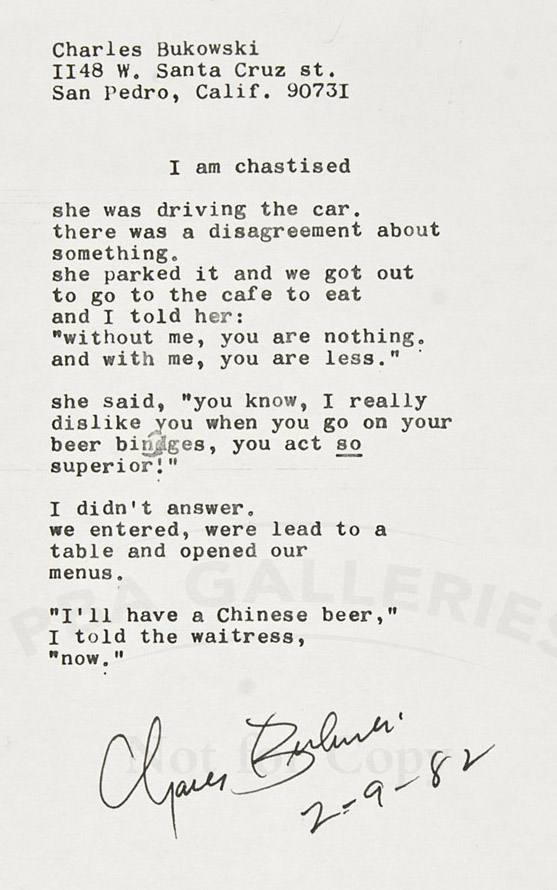 Charles Bukowski
II48 W. Santa Cruz st.
San Pedro, Calif. 9073I
I am chastised
she was driving the car.
there was a disagreement about
something.
she parked it and we got out
to go to the cafe to eat
and I told her:
"without me, you are nothing.
and with me, you are less."
she said, "you know, I really
dislike you when you go on your
beer bindges, you act so
superior!"
I didn't answer.
we entered, were lead to a
table and opened our
menus.
"I'll have a Chinese beer,"
I told the waitress,
"now."
PBA GALLERIES
Not for Copy
Charles Bukowski
2-9-82